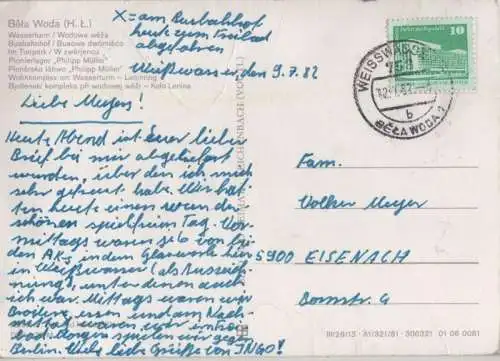 Běła Woda (H. Ł.)
Wasserturm / Wodowa wěža
Busbahnhof / Busowe dwórnišćo
Im Tierpark / W zwěrjencu
Pionierlager „Philipp Müller"
Pioněrske lěhwo „Philipp Müller"
Wohnkomplex am Wasserturm – Leninring
Bydlenski kompleks při wodowej wěži – Kolo Lenina
X = am Busbahnhof
heute zum Freibad
abgefahren
Weißwasser, den 9.7.82
Liebe Meyers!
Heute Abend ist Euer lieber
Brief bei mir abgeliefert
worden, über den ich mich
sehr gefreut habe. Wir hat-
ten heute einen wunder
schönen spielfreien Tag. Vor-
mittags waren je 6 von bei
den AK's in den Glaswerke hier
in Weißwasser (als Auszeich
nung), unter denen auch
ich war. Mittags waren wir
Broiler essen und am Nach-
mittag waren wir im Frei
bad. Morgen spielen wir gegen
Berlin. Viele liebe Grüße von INGO!
REICHENBACH (VOGTL)
10
WEISSWASSER
b
BĚŁA WODA 1
Fam.
Volker Meyer
5900 EISENACH
Domstr. 4
III/26/13 A1/321/81 300321 01 06 0081